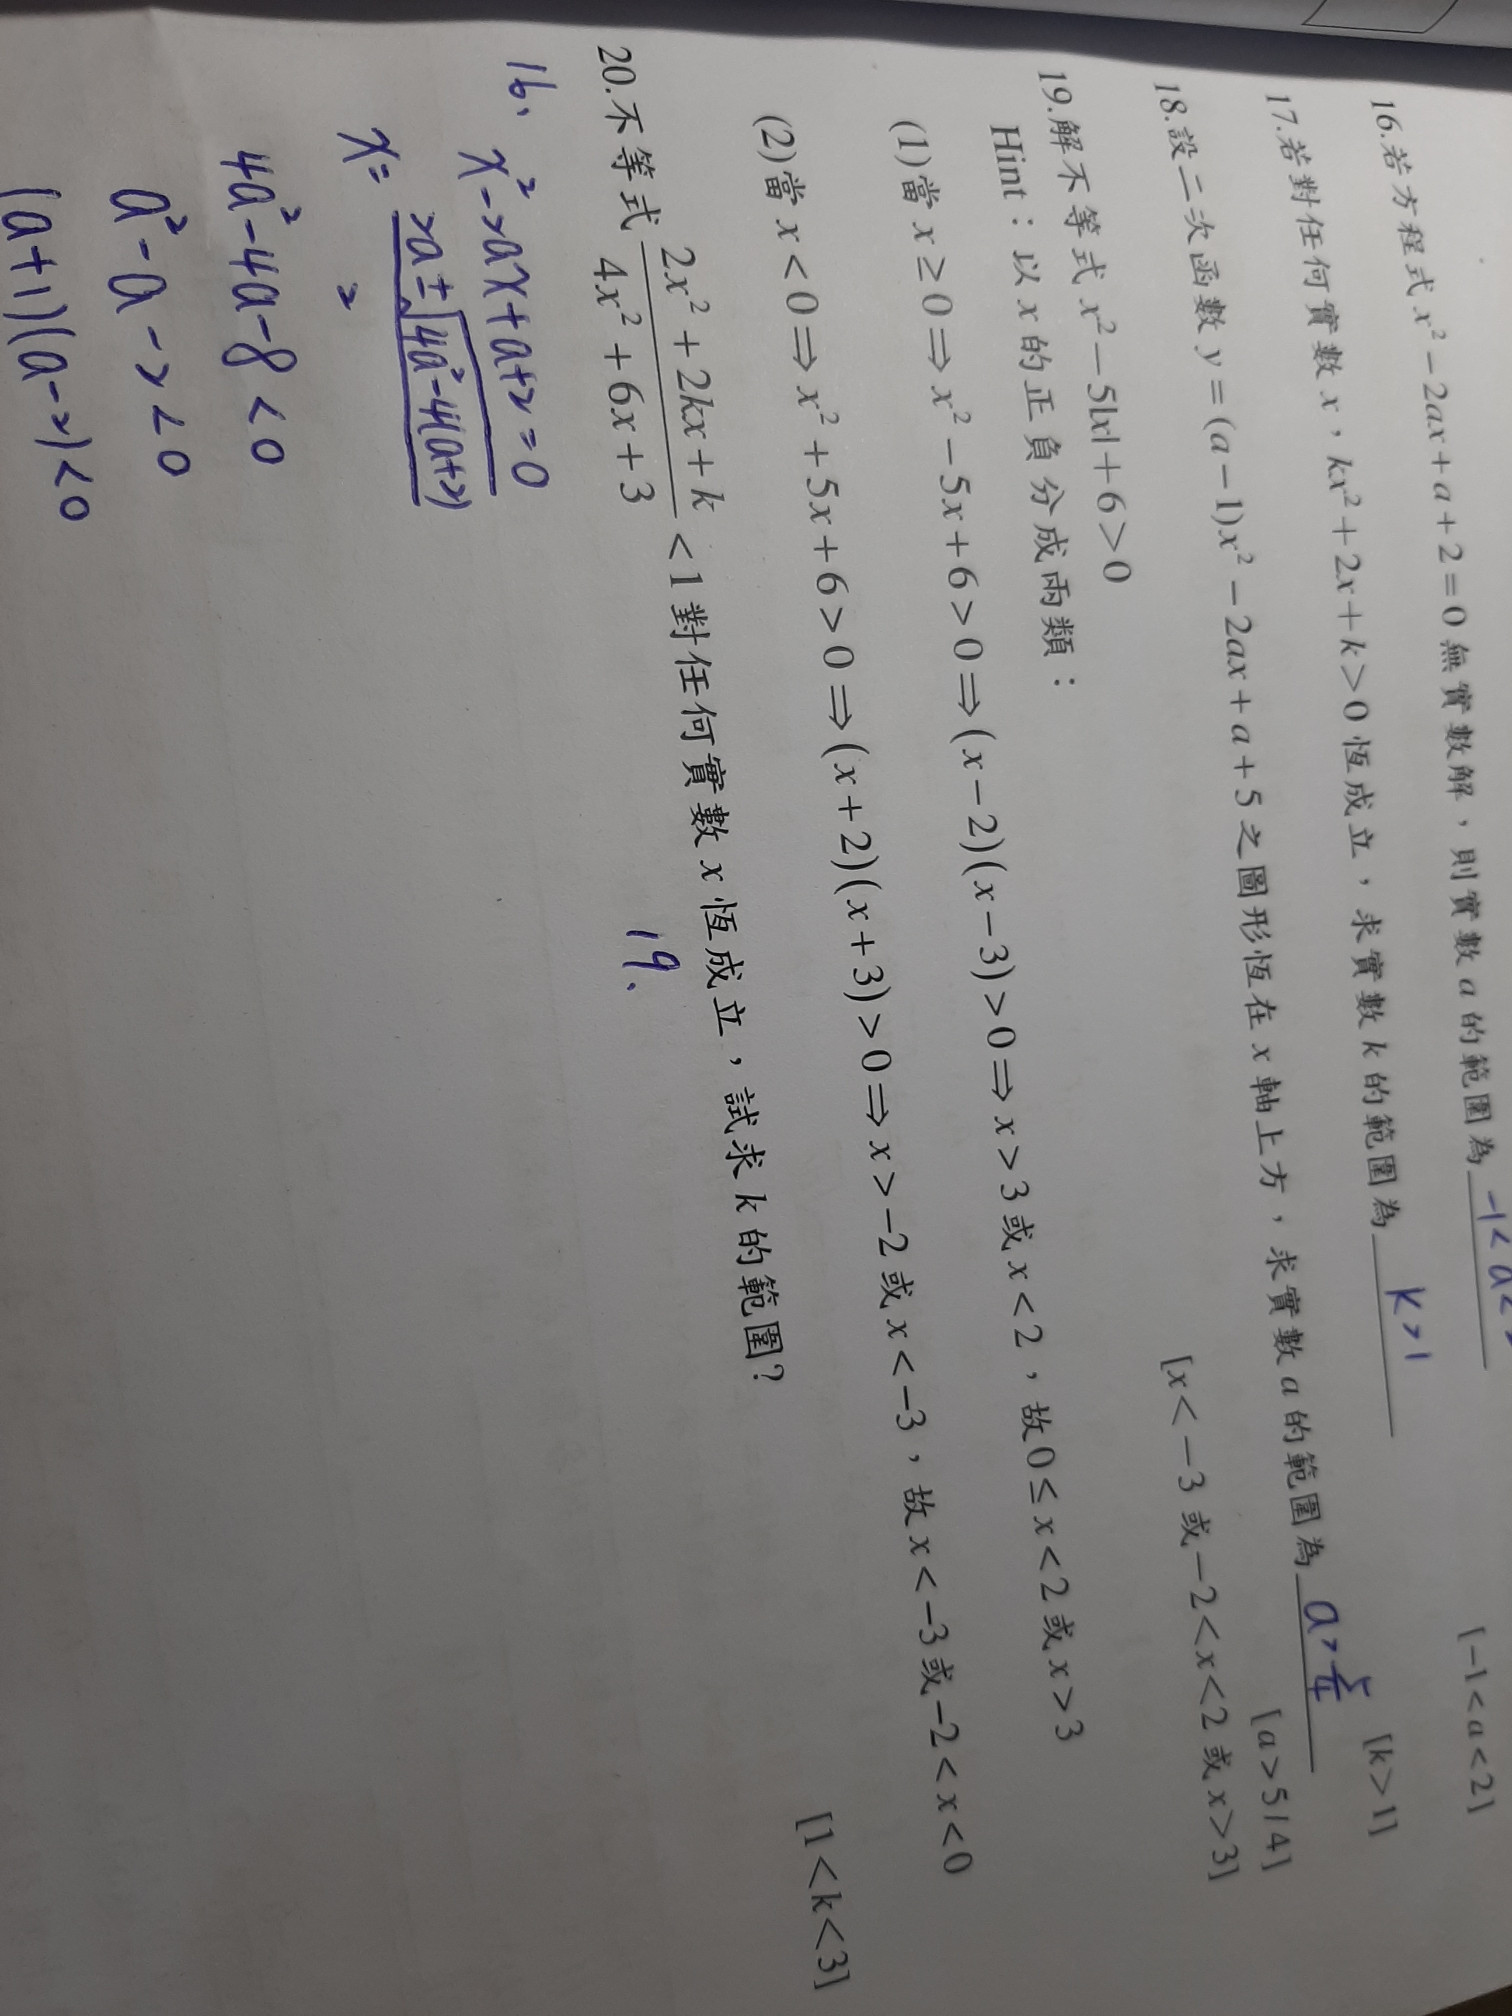 16.若方程式 x² − 2ax + a + 2 = 0 無實數解，則實數 a 的範圍為 -1<a<2
[−1 < a < 2]
17.若對任何實數 x，kx² + 2x + k > 0 恆成立，求實數 k 的範圍為 k>1
[k > 1]
18.設二次函數 y = (a − 1)x² − 2ax + a + 5 之圖形恆在 x 軸上方，求實數 a 的範圍為 a>5/4
[a > 5 / 4]
19.解不等式 x² − 5|x| + 6 > 0
[x < −3 或 −2 < x < 2 或 x > 3]
Hint：以 x 的正負分成兩類：
(1)當 x ≥ 0 ⇒ x² − 5x + 6 > 0 ⇒ (x − 2)(x − 3) > 0 ⇒ x > 3 或 x < 2，故 0 ≤ x < 2 或 x > 3
(2)當 x < 0 ⇒ x² + 5x + 6 > 0 ⇒ (x + 2)(x + 3) > 0 ⇒ x > −2 或 x < −3，故 x < −3 或 −2 < x < 0
20.不等式 (2x² + 2kx + k)/(4x² + 6x + 3) < 1 對任何實數 x 恆成立，試求 k 的範圍?
[1 < k < 3]
16.
x²-2ax+a+2=0
x= (2a±√(4a²-4(a+2)))/2
4a²-4a-8<0
a²-a-2<0
(a+1)(a-2)<0
19.